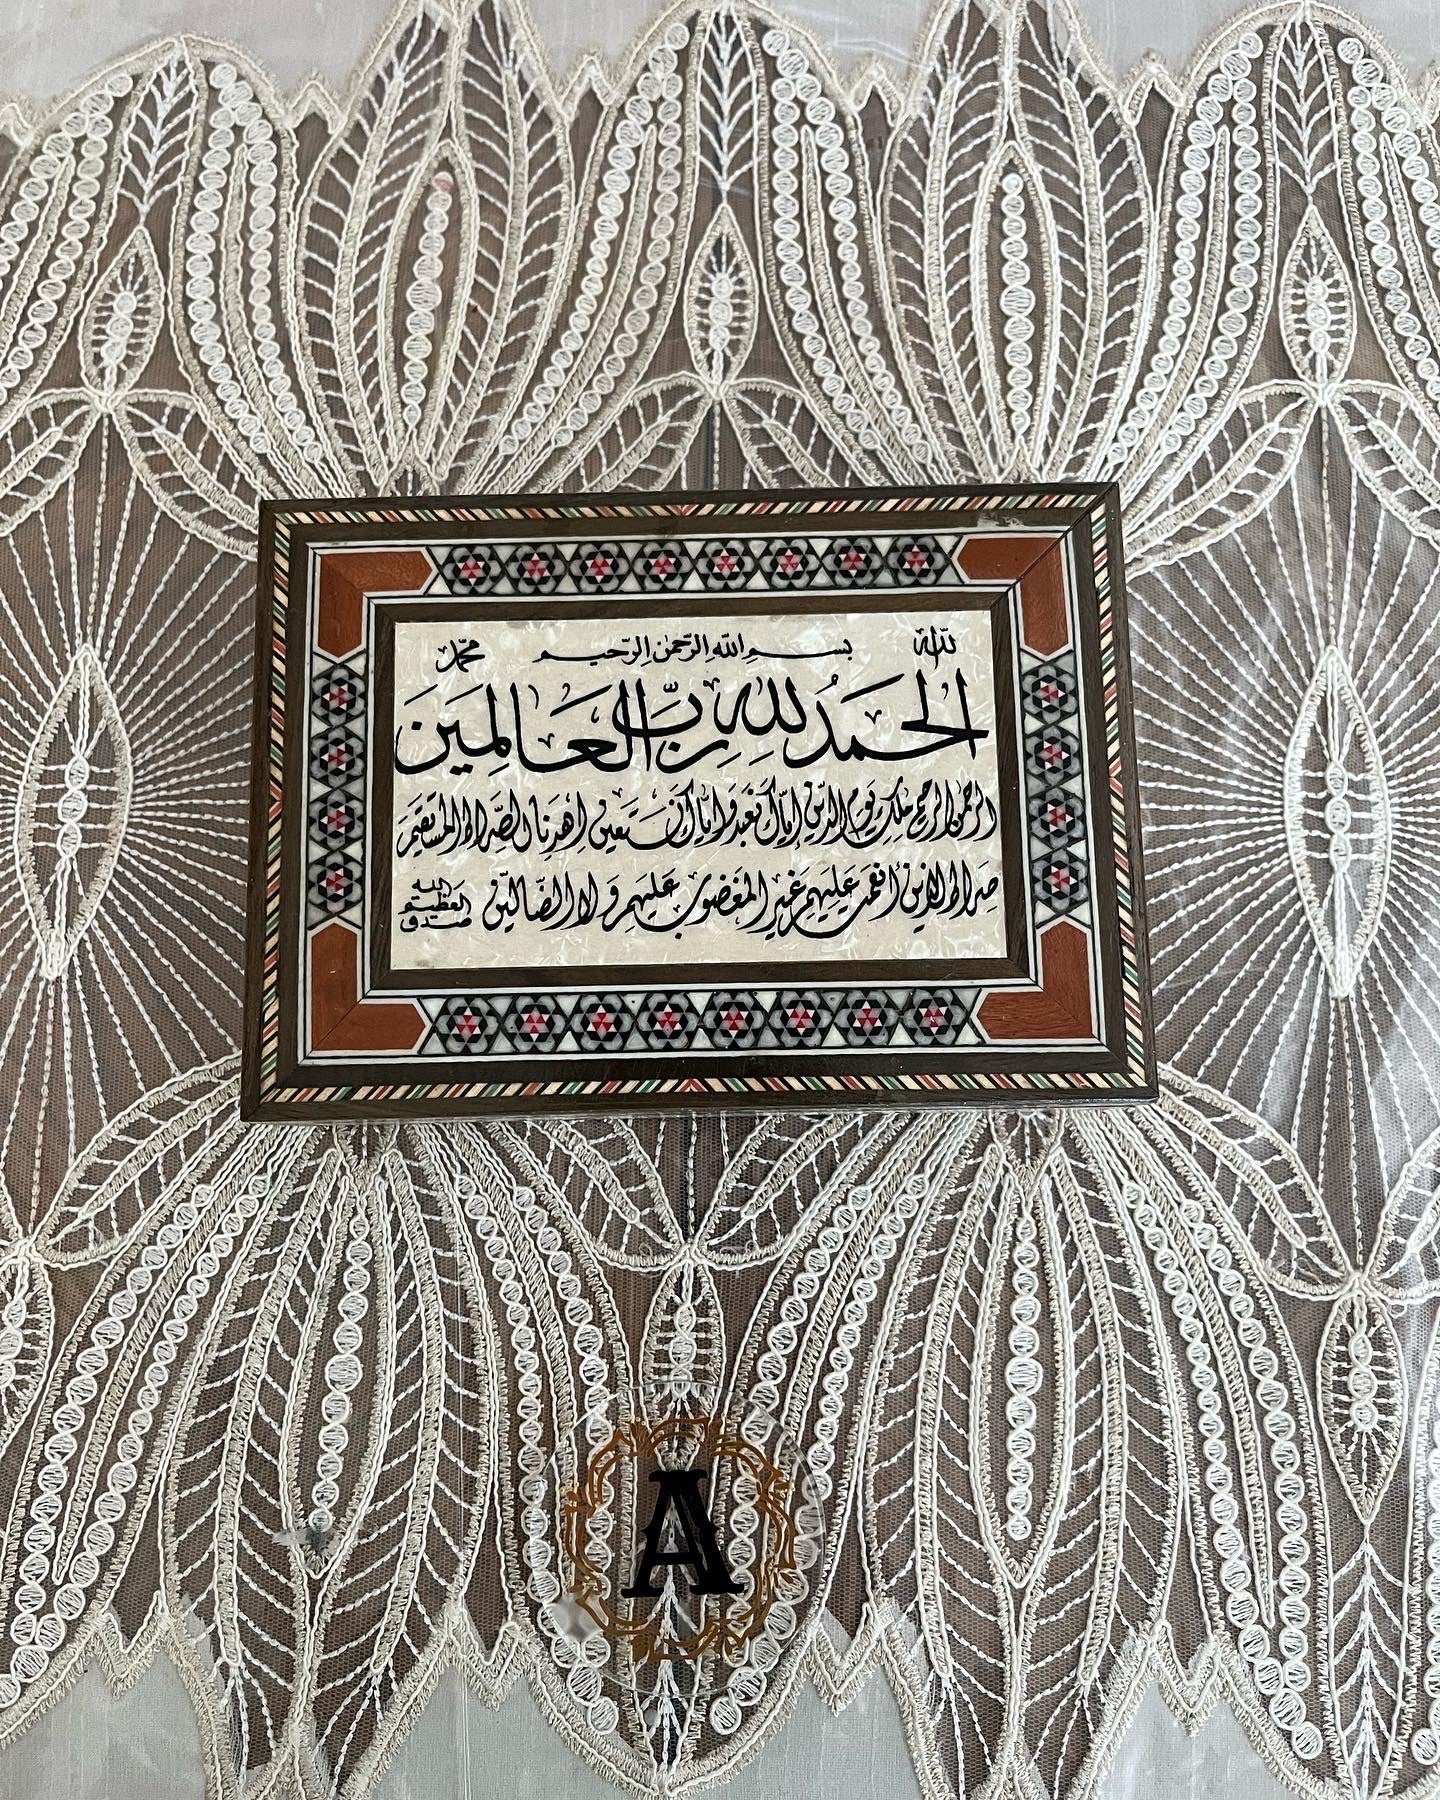 الله بسم الله الرحمن الرحيم محمد
الحمد لله رب العالمين
الرحمن الرحيم ملك يوم الدين إياك نعبد وإياك نستعين اهدنا الصراط المستقيم
صراط الذين انعمت عليهم غير المغضوب عليهم ولا الضالين صدق الله العظيم
A